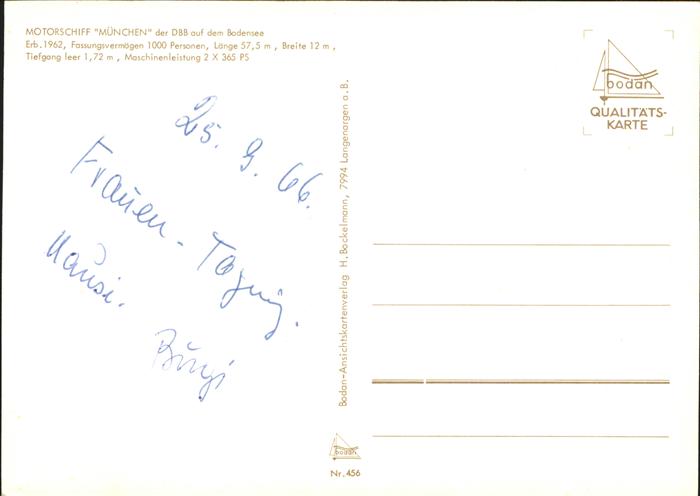 MOTORSCHIFF "MÜNCHEN" der DBB auf dem Bodensee
Erb. 1962, Fassungsvermögen 1000 Personen, Länge 57,5 m, Breite 12 m,
Tiefgang leer 1,72 m, Maschinenleistung 2 X 365 PS
25. 9. 66.
Frauen-Tagung.
Hausi.
Bürgi
Bodan-Ansichtskartenverlag H. Bockelmann, 7994 Langenargen a. B.
bodan
QUALITÄTS-
KARTE
bodan
Nr. 456